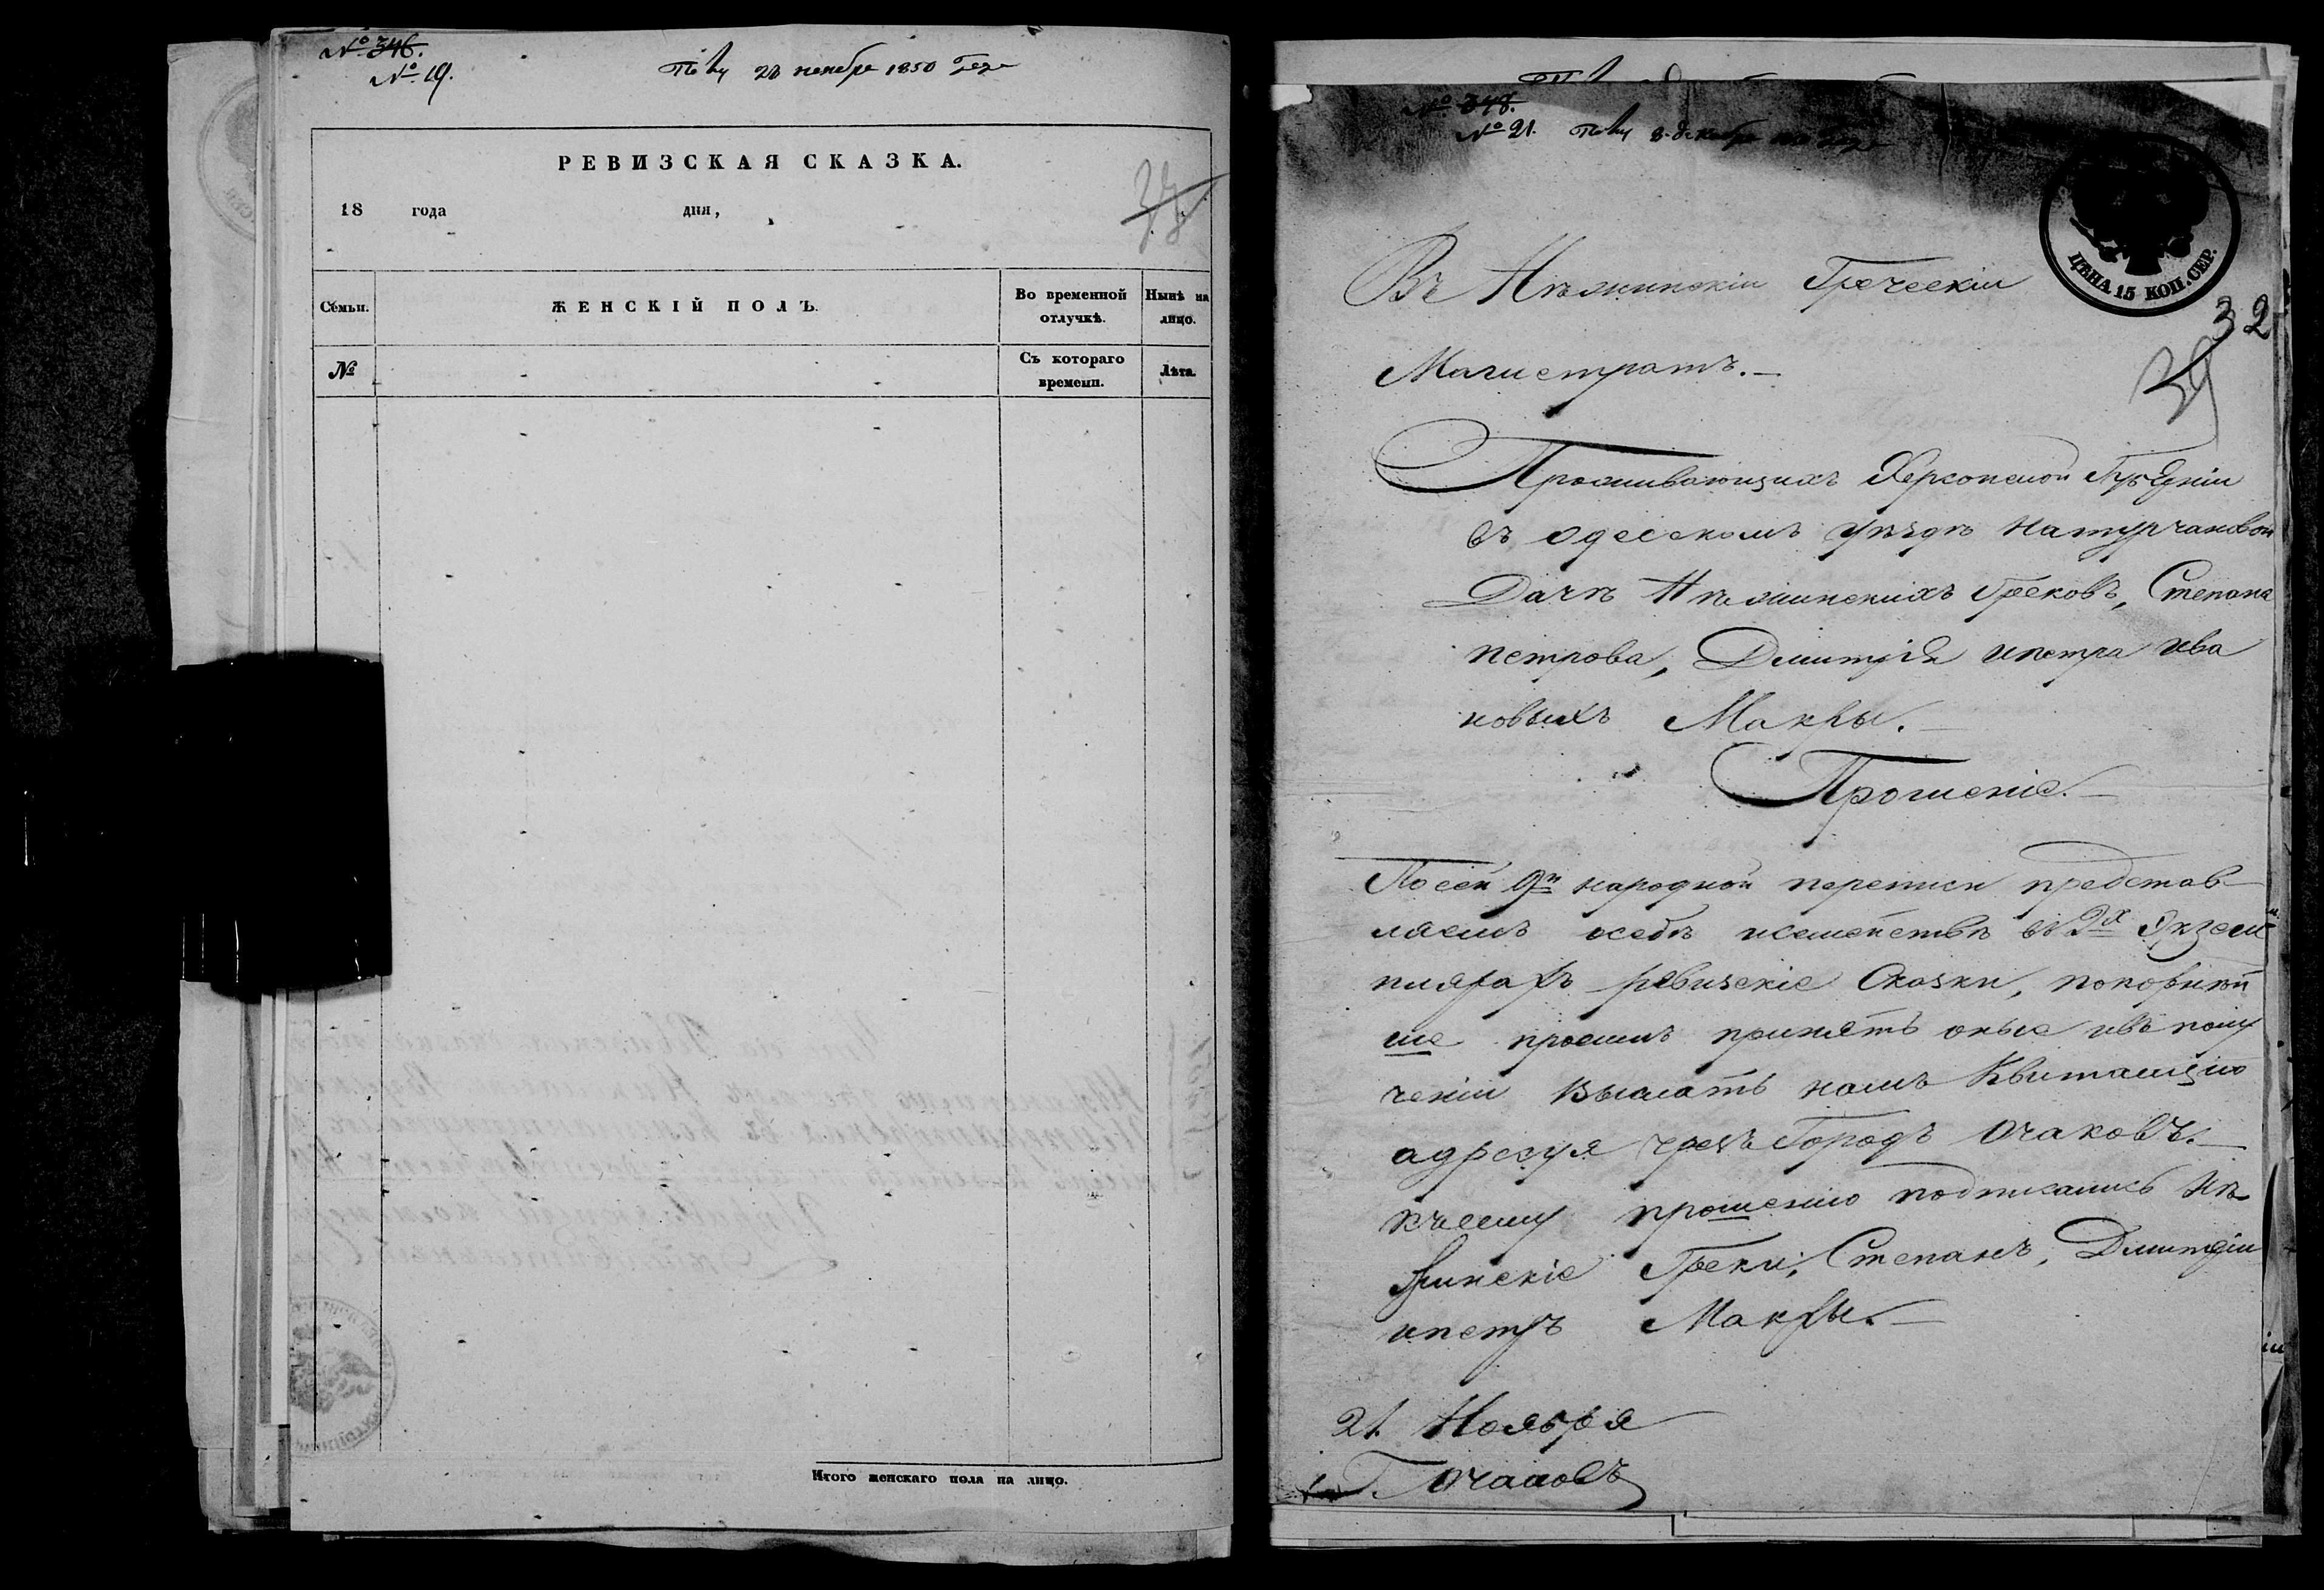 № 346.
№ 19.
28 ноября 1850 года
РЕВИЗСКАЯ СКАЗКА.
18 года дня,
Семьи.
ЖЕНСКІЙ ПОЛЪ.
Во временной отлучкѣ.
Нынѣ на лицо.
№
Съ котораго времени.
Лѣта.
Итого женскаго пола на лицо.
№ 348.
№ 21. 8 декабря 1850 года
ЦѢНА 15 КОП. СЕР.
32
39
Въ Нѣжинскіи Греческіи
Магистратъ.
Проживающихъ Херсонской Губерніи
въ одесскомъ уѣздѣ
Дачѣ Нѣжинскихъ Грековъ, Степана
петрова, Дмитрія ипетра ива
новыхъ Макры.
Прошеніе.
Посей 9й народной переписи представ
ляемъ осебѣ исемействѣ въ 2х Экзем
плярахъ ревизскіе Сказки, покорнѣй
ше просимъ принять оные ивъ полу
ченіи выслать намъ Квитанцію
адресуя чрезъ Городъ Очаковъ.
късему прошенію подписались Нѣ
жинскіе Греки, Степанъ, Дмитріи
ипетръ Макры.
21. Ноября
Г. Очаковъ